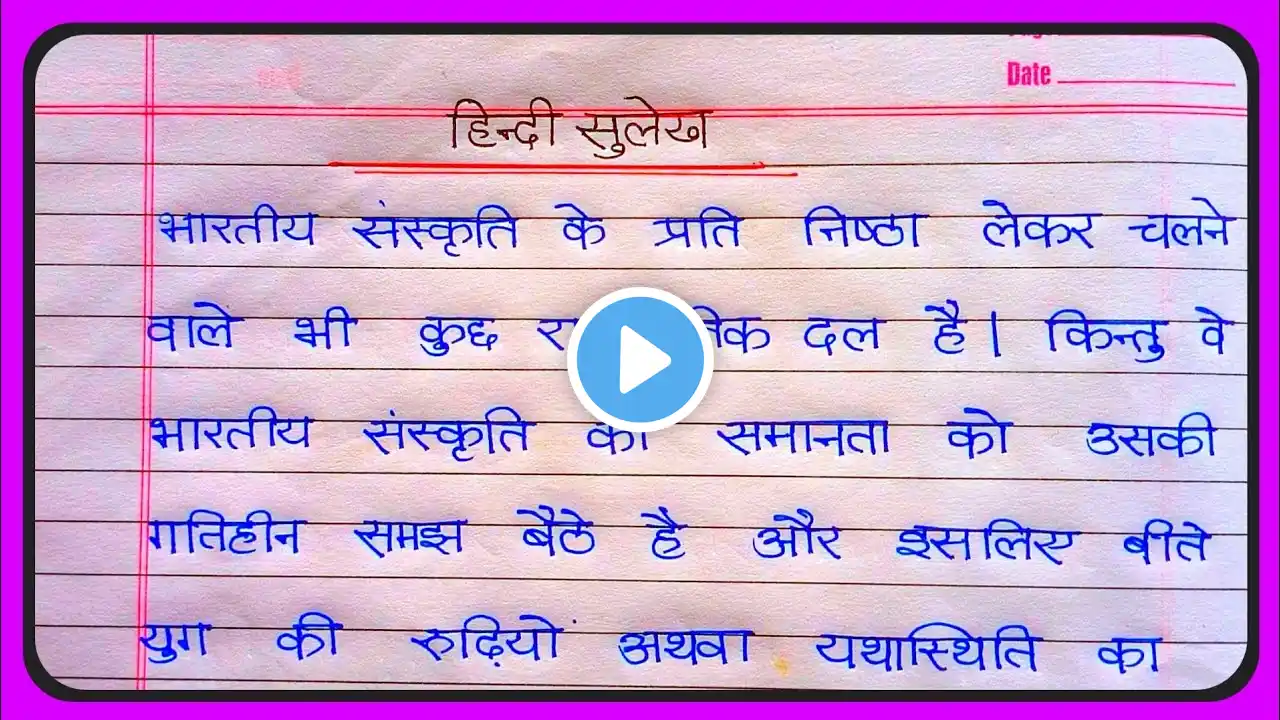 Date
हिन्दी सुलेख
भारतीय संस्कृति के प्रति निष्ठा लेकर चलने
वाले भी कुछ दल है। किन्तु वे
भारतीय संस्कृति समानता को उसकी
गतिहीन समझ बैठे है और इसलिए बीते
युग की रुढ़ियों अथवा यथास्थिति का